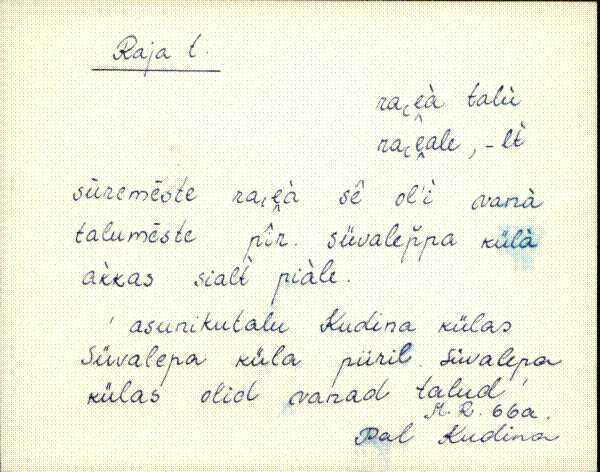 Raja t.
ra͔i̯e̯à talù
ra͔i̯e̯ale, -lt̀
sūremēste ra͔i̯e̯à sê̄ ol'ì vanà
talumēste pîr. sūvalep̆pa külà
ak̀kas sialt̀ piàle.
' asunikutalu Kudina külas
Süvalepa küla piiril. Süvalepa
külas olid vanad talud '
M. R. 66a.
Pal Kudina